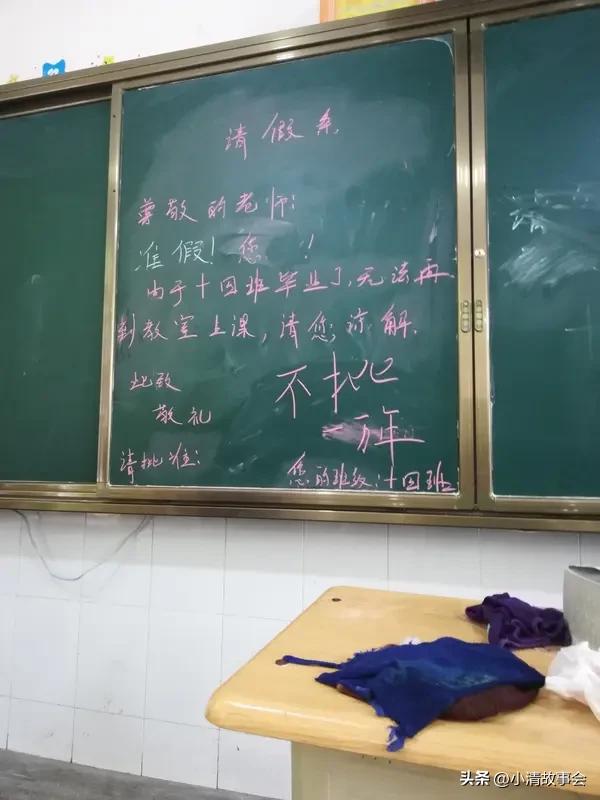 请假条
尊敬的老师:
准假!您 !
由于十四班毕业了,无法再
到教室上课,请您谅解.
此致
敬礼
不批
请批准:
您的班级:十四班
头条 @小清故事会